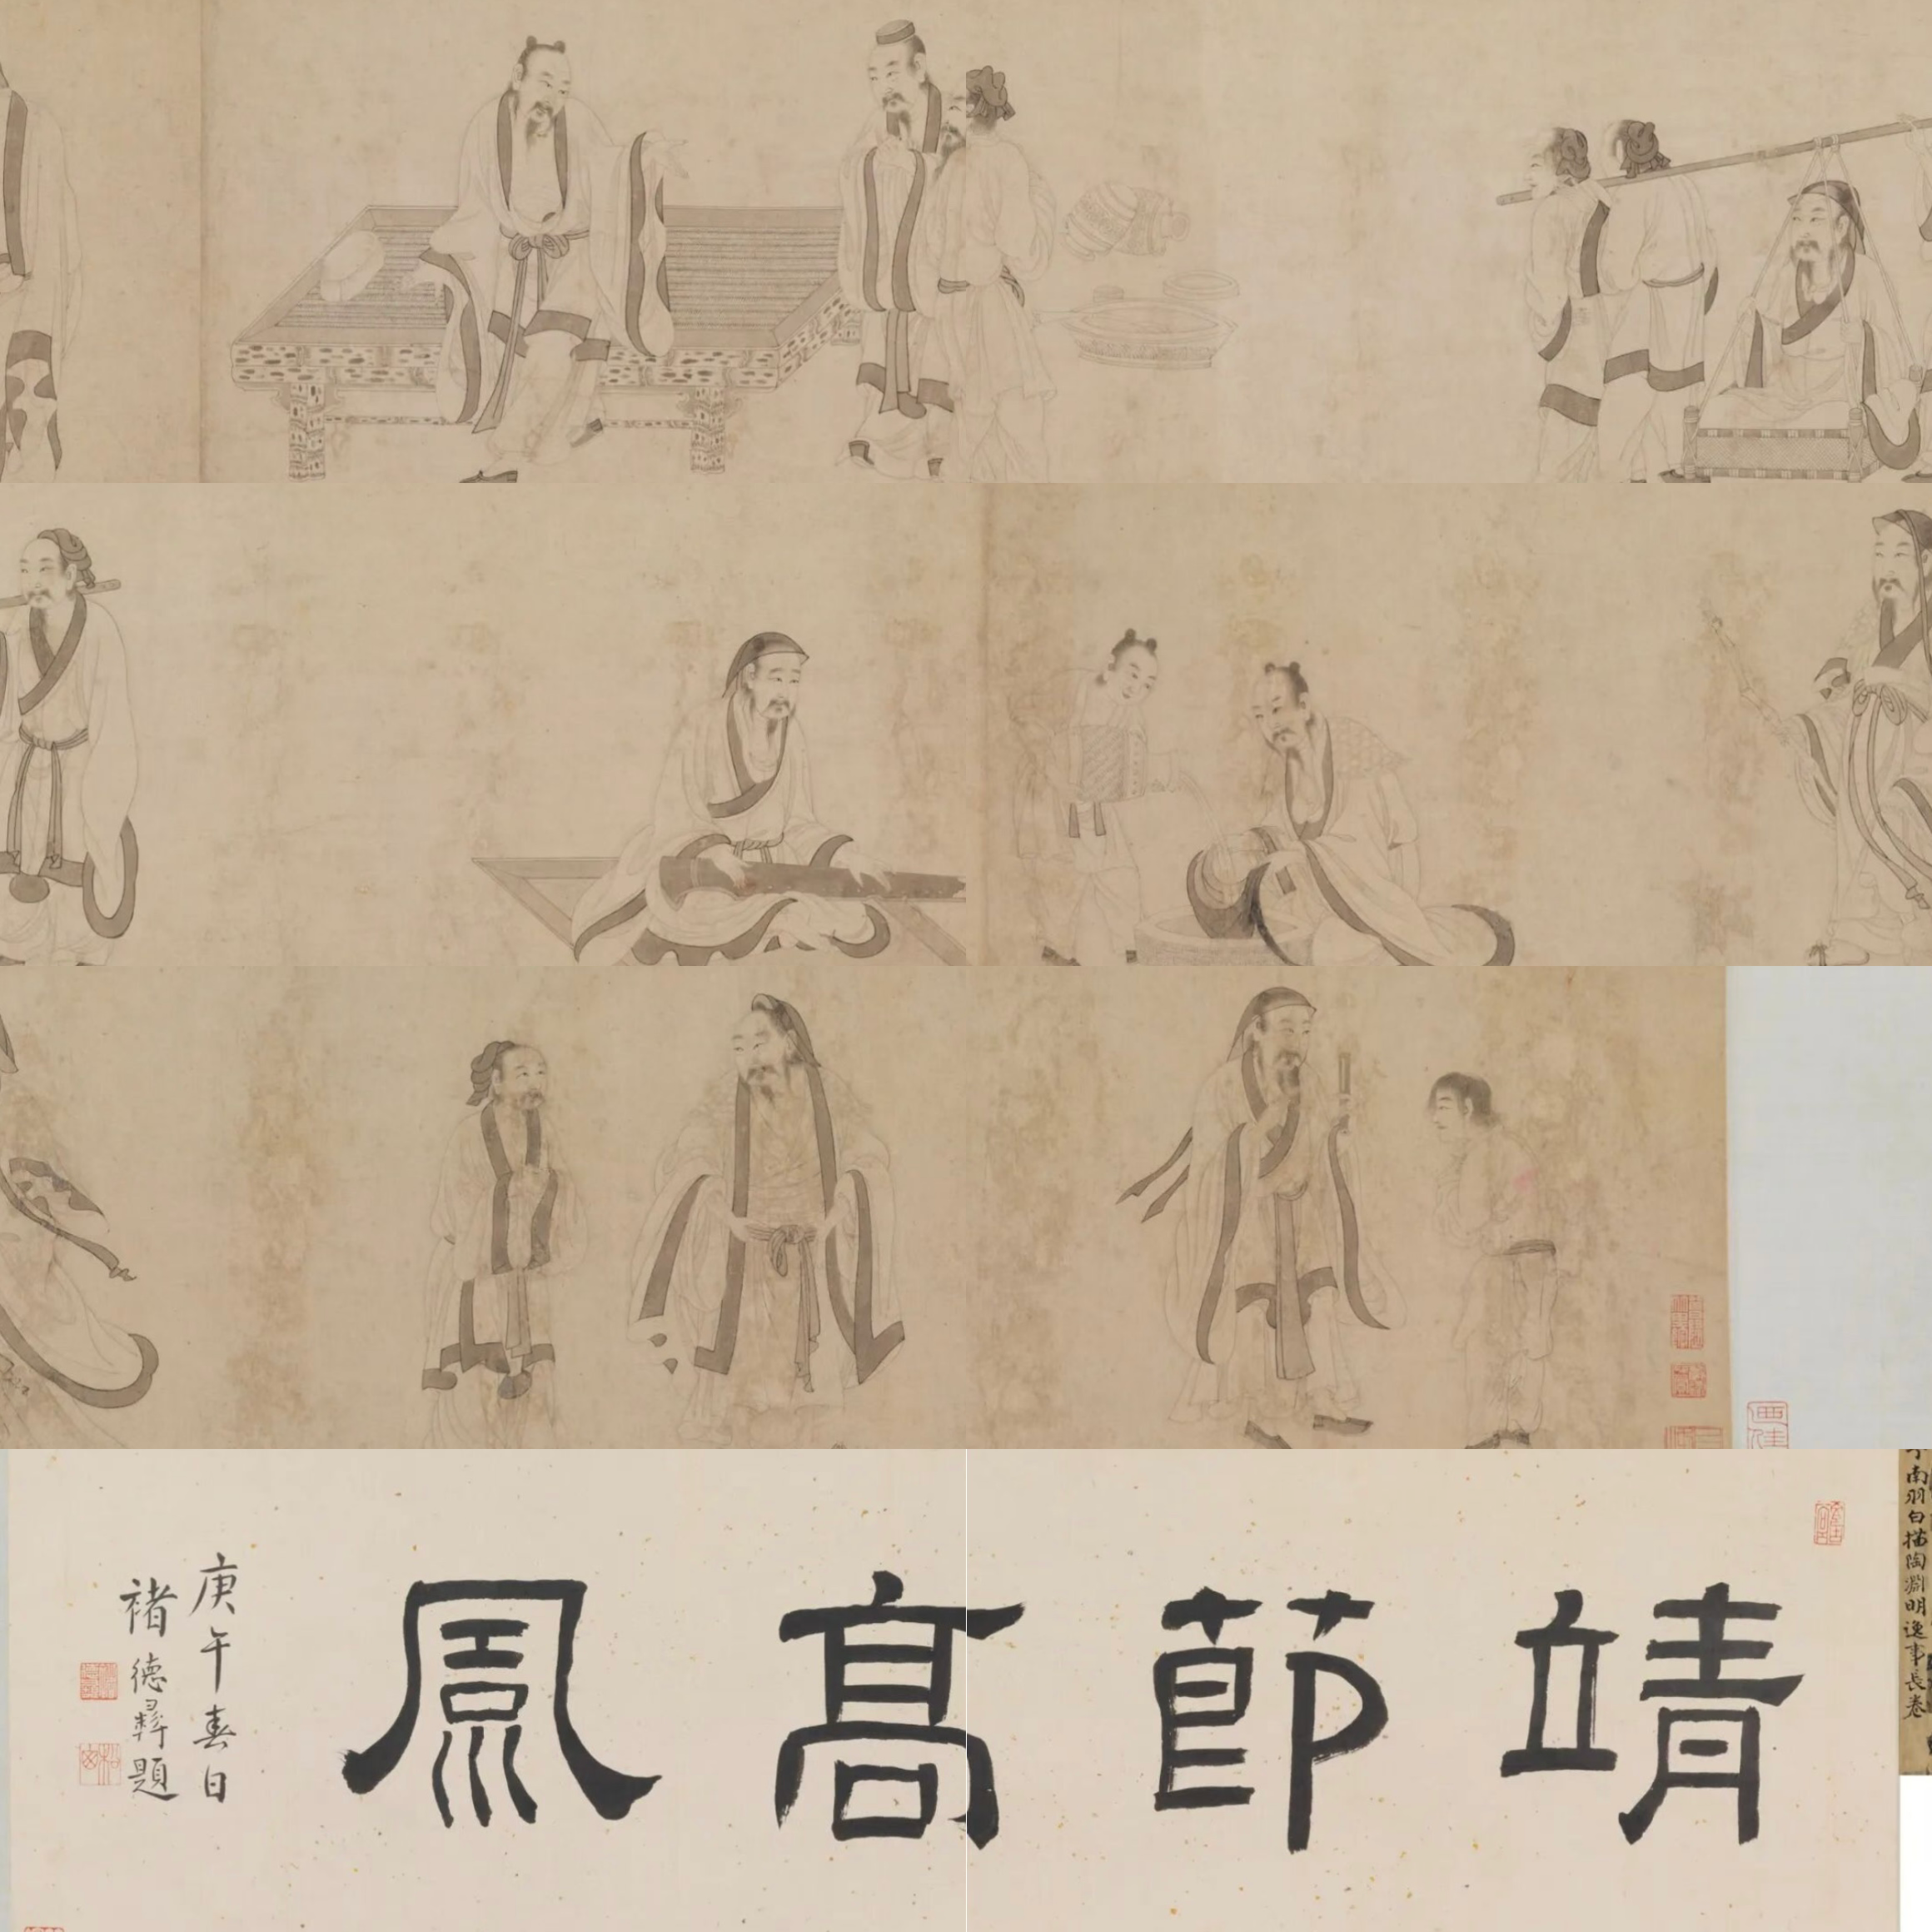 南羽白描陶淵明逸事長卷
靖節高風
庚午春日
褚德彝題